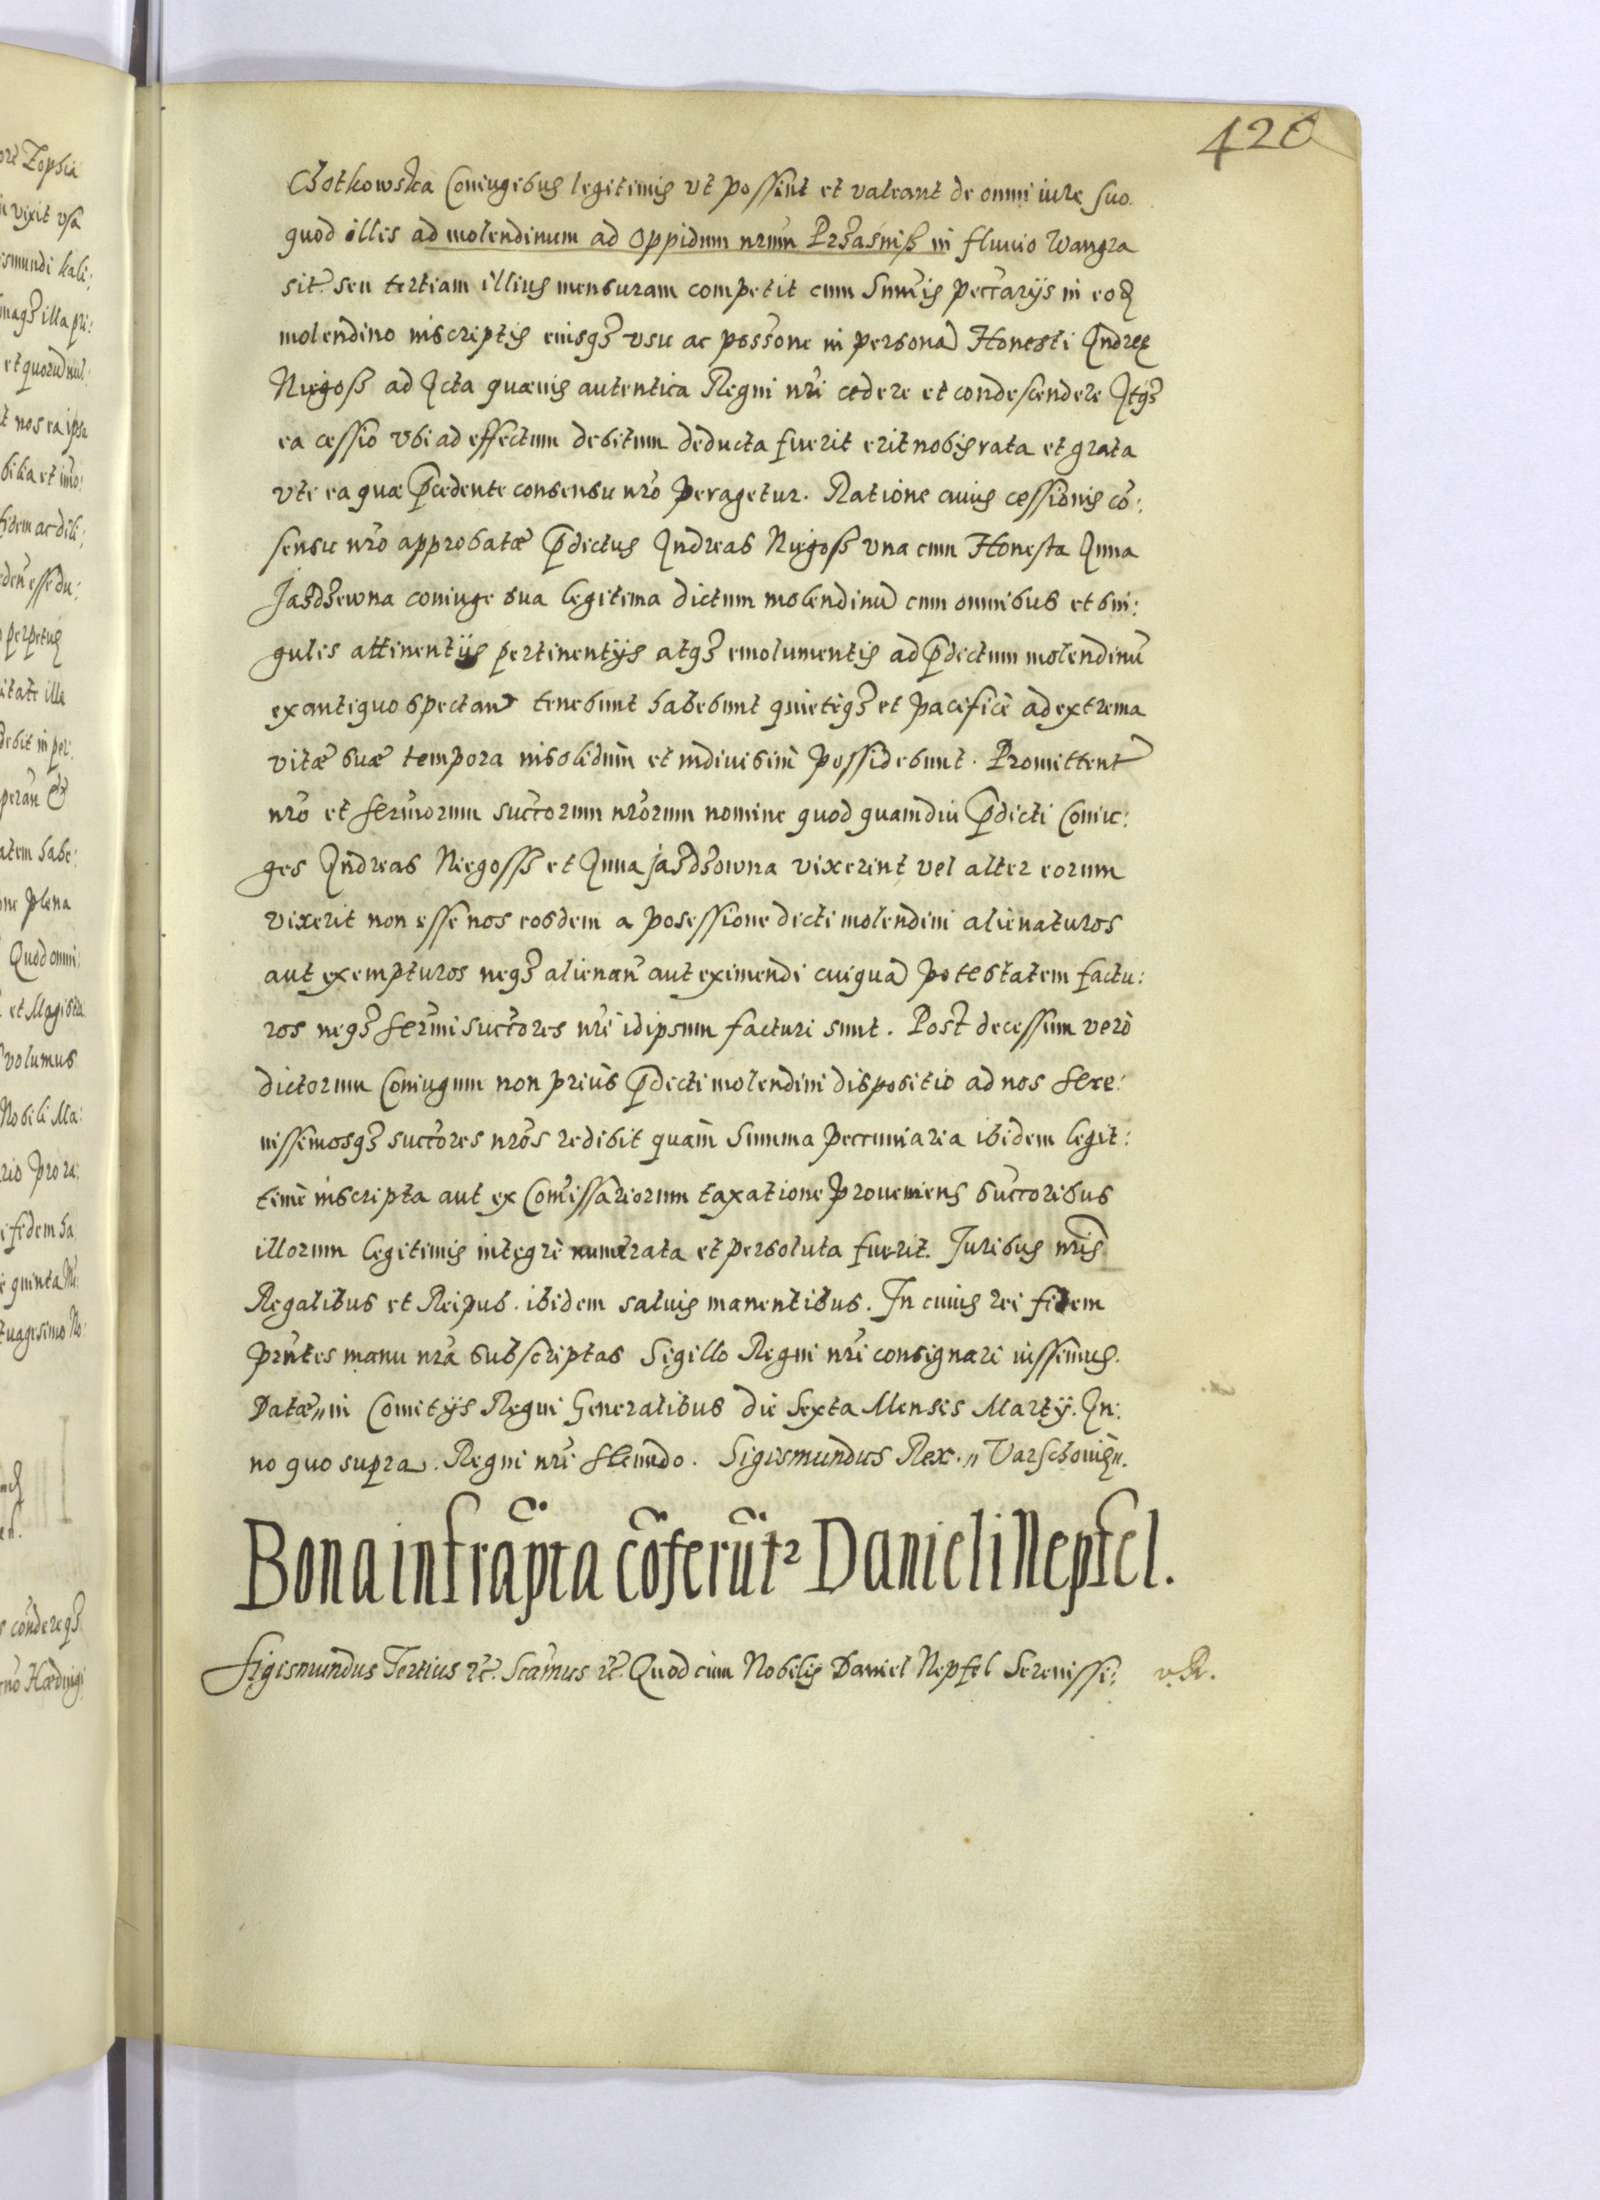 420
Chotkowska Coniugibus legitimis ut possint et valeant de omni iure suo
quod illis ad molendinum ad oppidum nrum Przasniß in fluvio Wangra
sit seu tertiam illius mensuram competit cum Summis peccarijs in eod
molendino inscriptis eiusq vsu ac possone in persona Honesti Andreæ
Niegoß ad Acta quævis autentica Regni nri cedere et condescendere Atq
ea cessio vbi ad effectum debitum deducta fuerit erit nobis rata et grata
vti ea quæ pcedente consensu nro peragetur. Ratione cuius cessionis co:
sensu nro approbatæ pdictus Andreas Niegoß vna cum Honesta Anna
Jazdzewna coniuge sua legitima dictum molendinu cum omnibus et sin:
gulis attinentijs pertinentijs atq emolumentis ad pdictum molendinu
ex antiquo spectan tenebunt habebunt quieteq et pacifice ad extrema
vitæ suæ tempora insolidum et indivisim possidebunt. Promittent
nro et sermorum succorum nrorum nomine quod quamdiu pdicti Coniu:
ges Andreas Niegossz et Anna Jazdzowna vixerint vel alter eorum
vixerit non esse nos eosdem a posessione dicti molendini alienaturos
aut exempturos neq alienan aut eximendi cuiqua potestatem factu:
ros neq sermi succores nri idipsum facturi sunt. Post decessum vero
dictorum Coniugum non prius pdicti molendini dispositio ad nos Sere:
nissimosq succores nros redibit quam Summa peccuniaria ibidem legit:
time inscripta aut ex Comissariorum taxatione proveniens succoribus
illorum legitimis integre numerata et persoluta fuerit. Juribus nris
Regalibus et Reipub. ibidem salvis manentibus. In cuius rei fidem
pntes manu nra subscriptas Sigillo Regni nri consignari iussimus.
Datæ in Comitijs Regni Generalibus die Sexta Mensis Martij. An:
no quo supra. Regni nri Secundo. Sigismundus Rex. Varschovieñ.
Bona infrapta coferutr Danieli Nepfel.
Sigismundus Tertius etc. Scamus etc. Quod cum Nobilis Daniel Nepfel Serenissi: v. R.